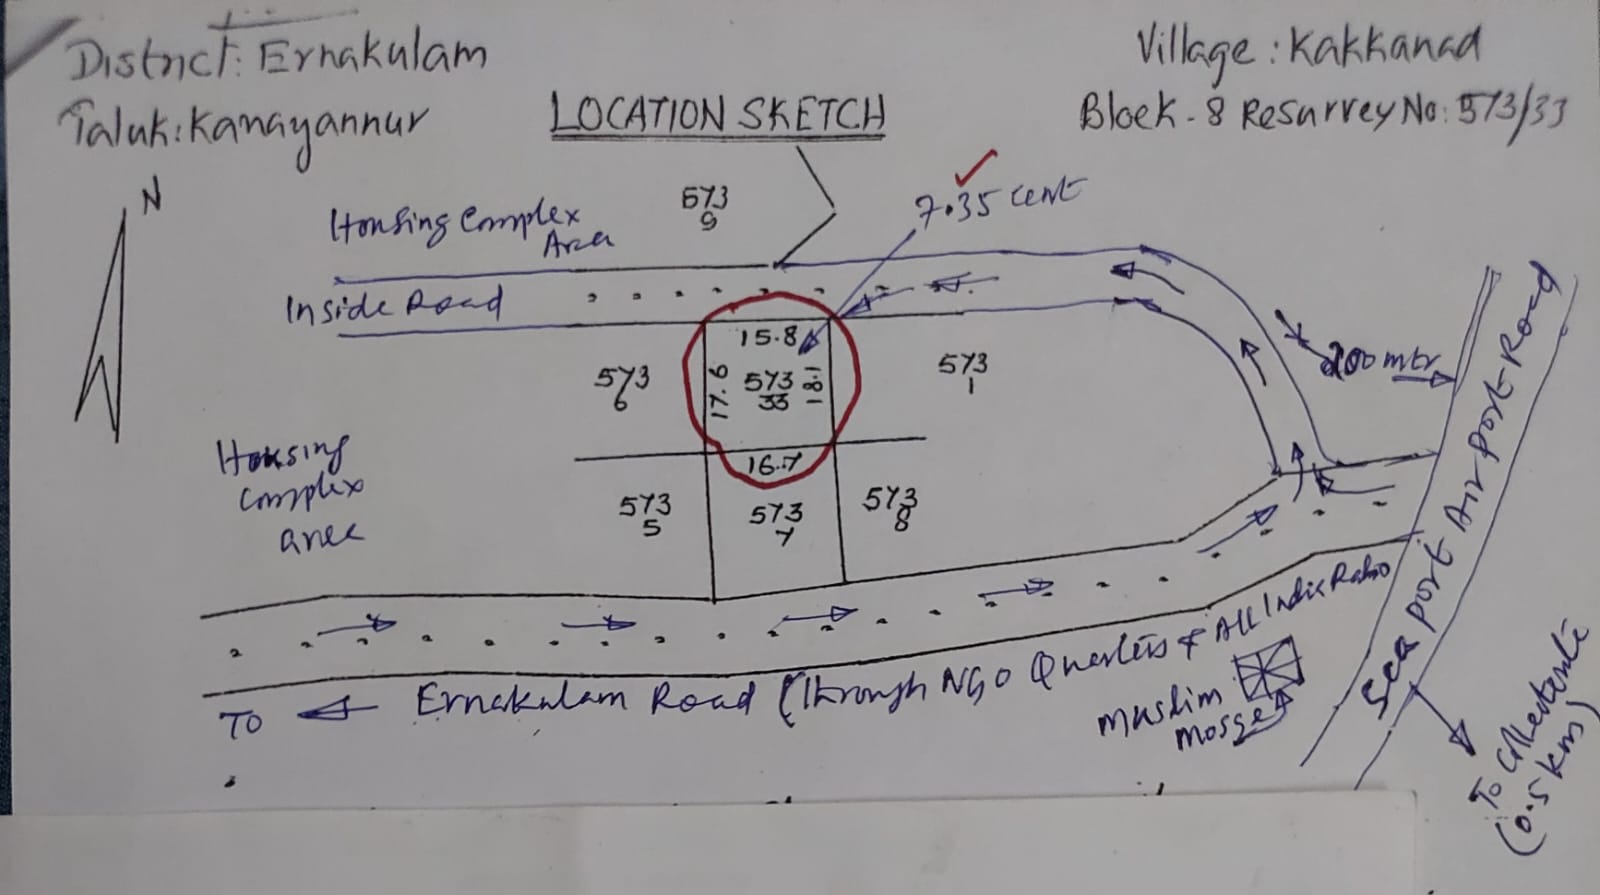 District: Ernakulam
Taluk: Kanayannur
LOCATION SKETCH
Village: Kakkanad
Block - 8 Resurvey No: 573/33
N
Housing Complex
Area
573
9
7.35 cent
Inside Road
15.8
17.6
573
33
18.1
16.7
573
6
573
1
200 mtr
Housing
Complex
area
573
5
573
7
573
8
Sea port Air port Road
To Ernakulam Road (Through NGO Quarters & All India Radio
Muslim
Mosque
To
(0.5 km)